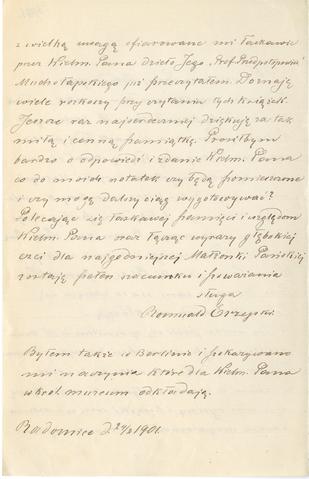 z wielką uwagą ofiarowane mi łaskawie
przez Wielm. Pana dzieło Jego "Prof. Przedpotopowicz"
już przeczytałem. Doznaję
wiele roskoszy przy czytaniu tych książek.
Jeszcze raz najserdeczniej dziękuję za tak
miłą i cenną pamiątkę. Prosiłbym
bardzo o odpowiedź i zdanie Wielm. Pana
co do moich notatek czy będą pomieszczone
i czy mogę dalszy ciąg wygotowywać?
Polecając się łaskawej pamięci i względom
Wielm. Pana oraz łącząc wyrazy głębokiej
czci dla najgodniejszej Małżonki Pańskiej
zostaję pełen szacunku i poważania
sługa
Romuald Erzepki.
Byłem także w Berlinie i pokazywano
mi naczynia które dla Wielm. Pana
w król. museum odkładają.
Radomice d. 24/2 1901.